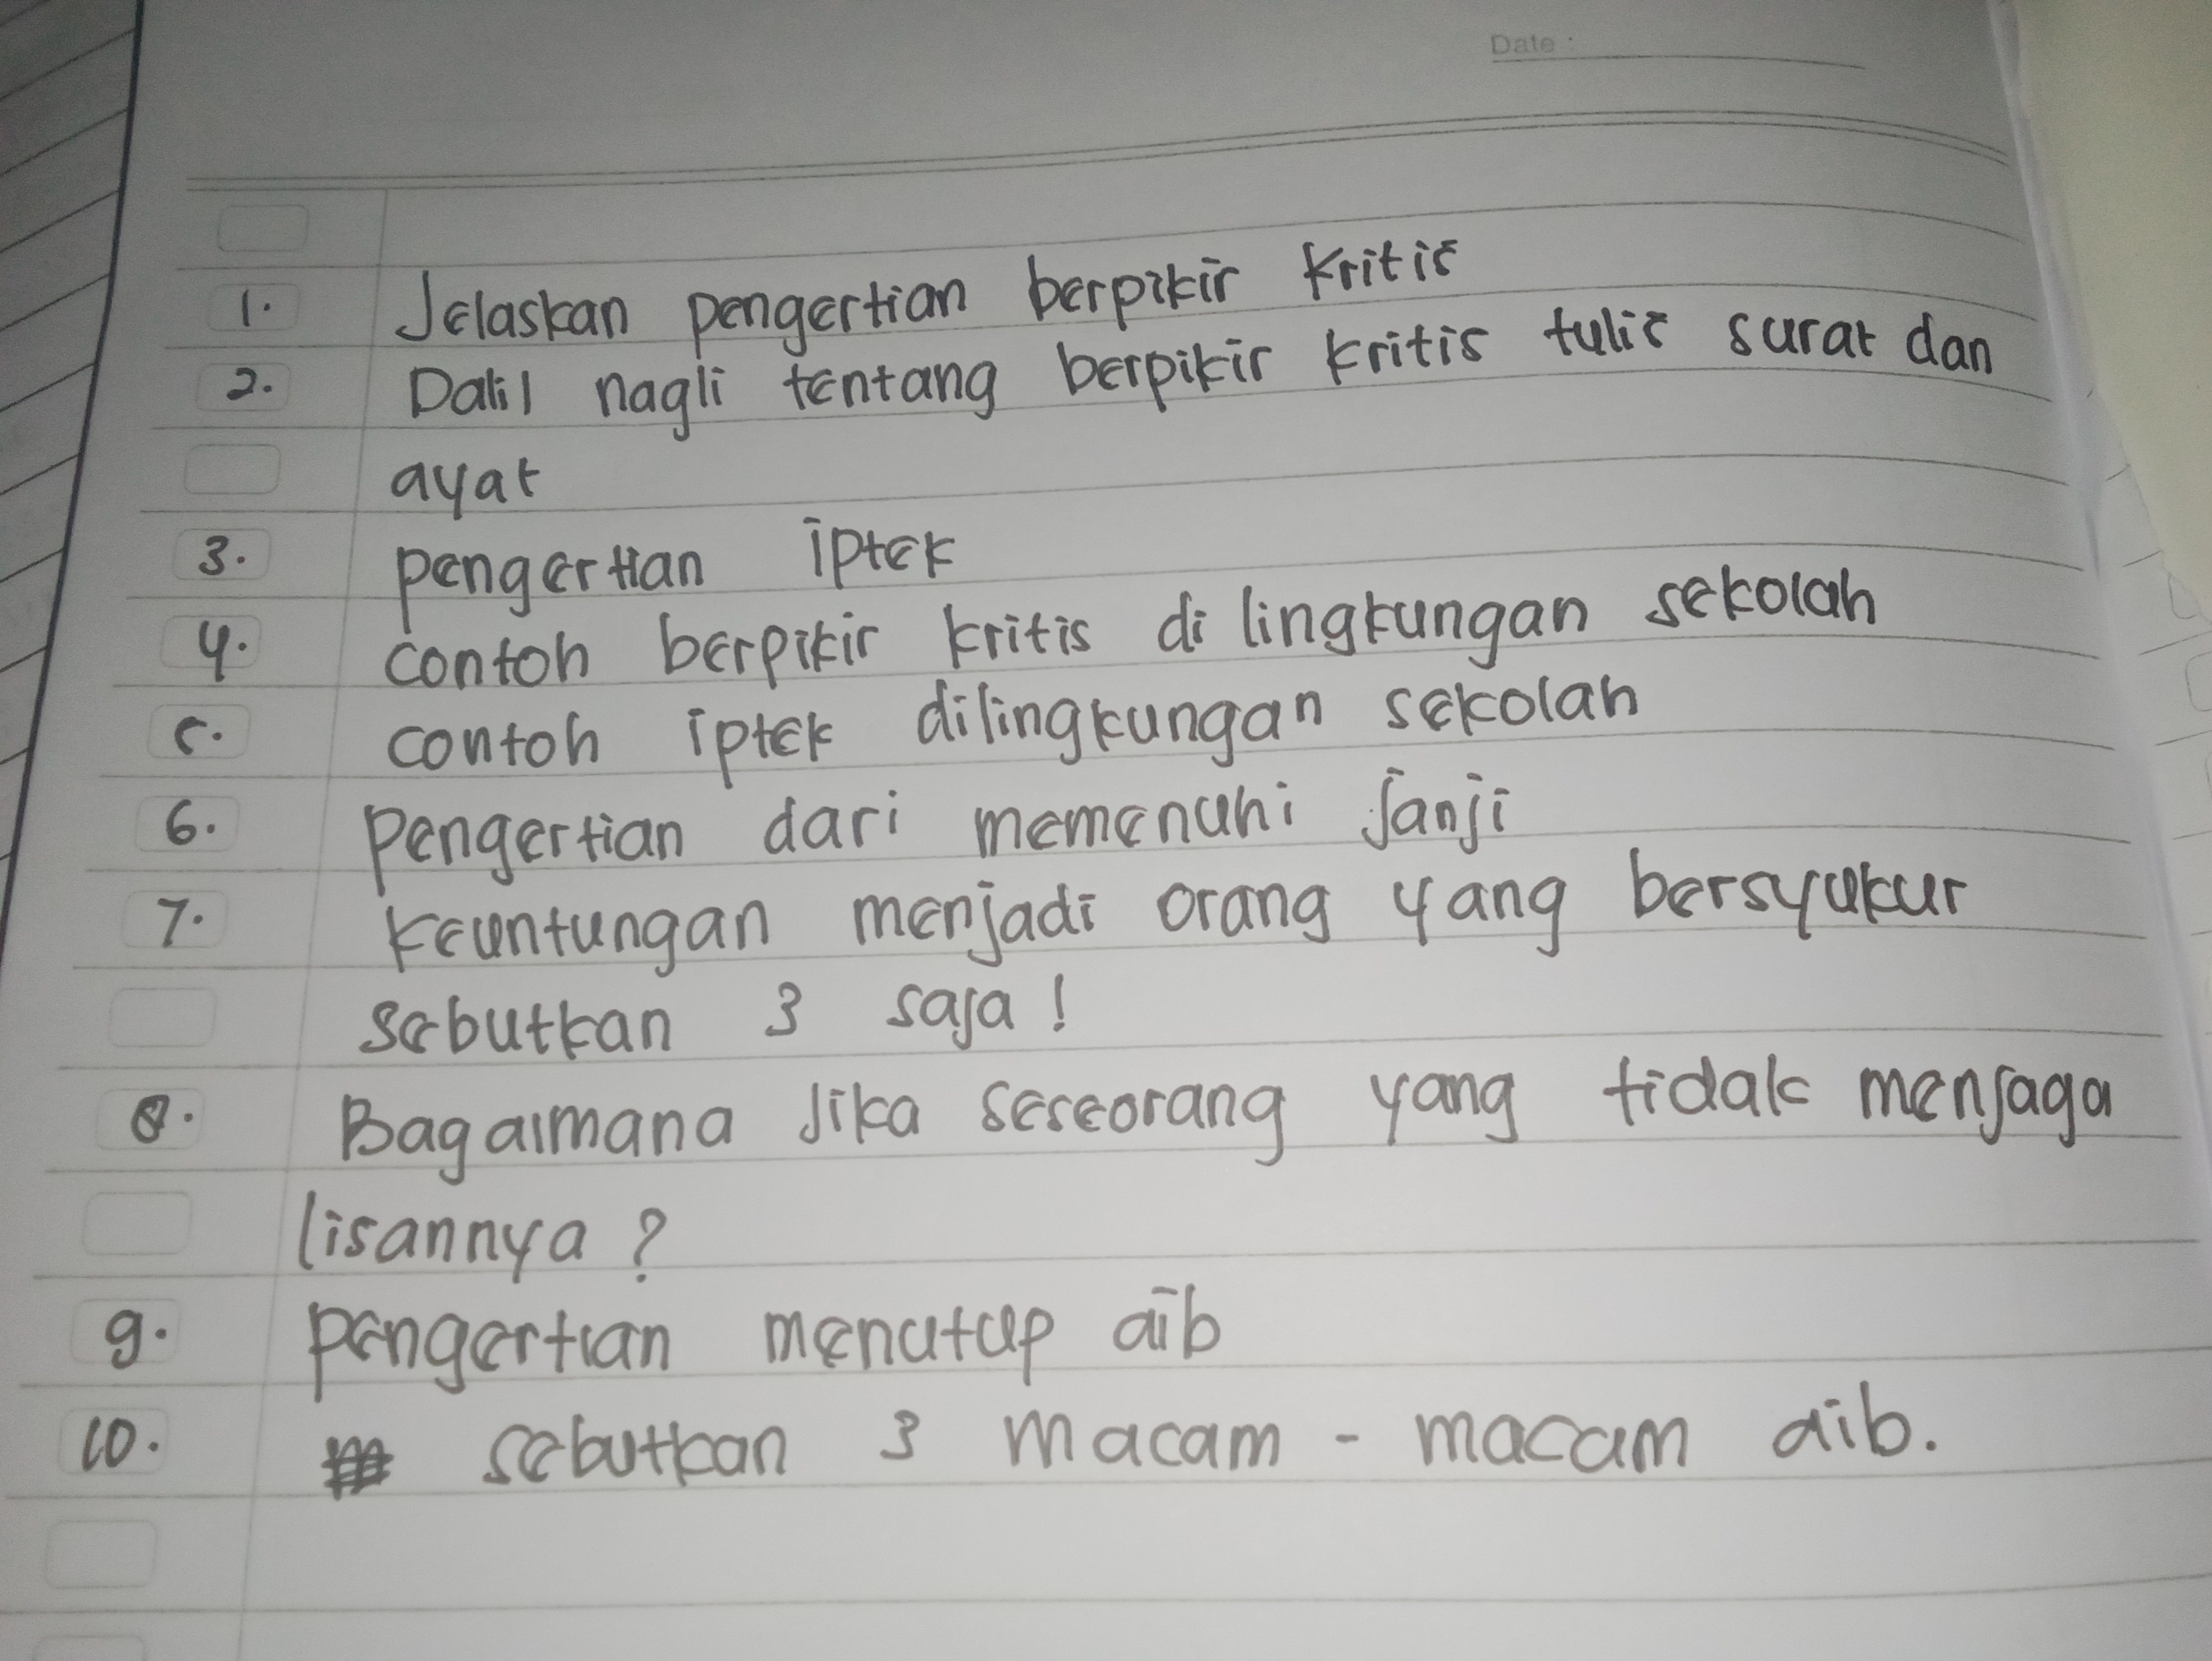 Date :
1. Jelaskan pengertian berpikir kritis
2. Dalil nagli tentang berpikir kritis tulis surat dan
ayat
3. pengertian iptek
4. contoh berpikir kritis di lingkungan sekolah
5. contoh iptek dilingkungan sekolah
6. pengertian dari memenuhi janji
7. keuntungan menjadi orang yang bersyukur
sebutkan 3 saja !
8. Bagaimana Jika seseorang yang tidak menjaga
lisannya ?
9. pengertian menutup aib
10. sebutkan 3 macam - macam aib.